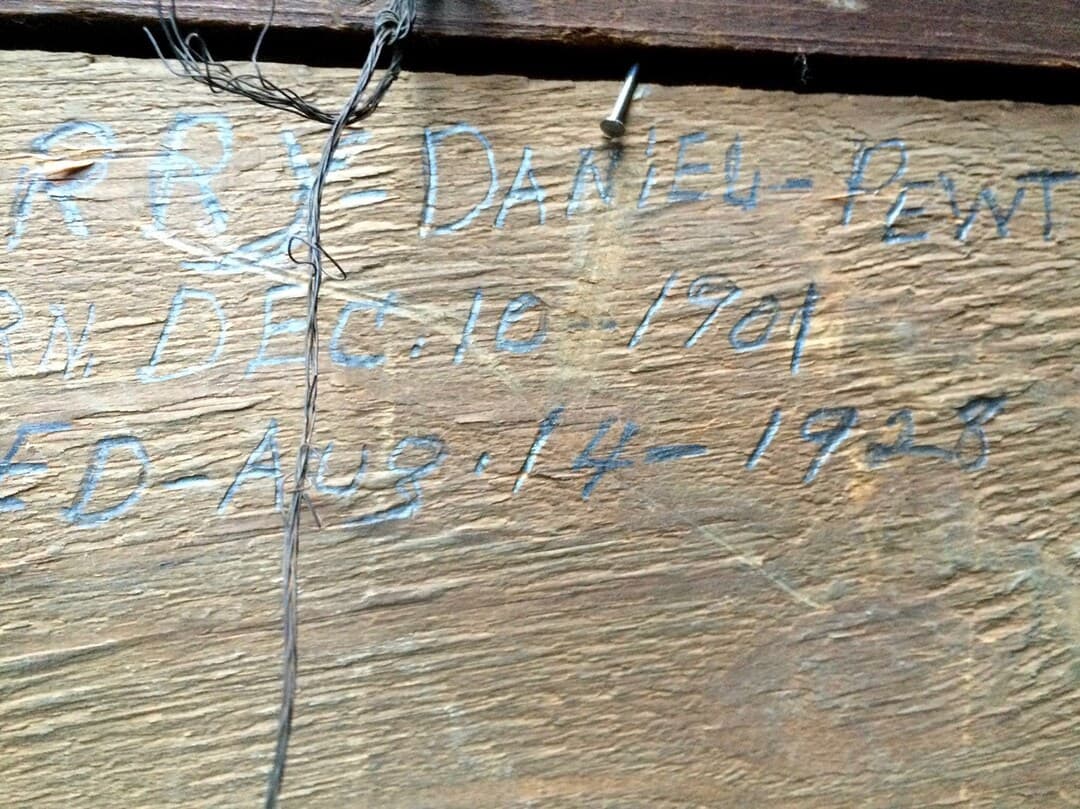 RRY-DANIEL-PEWT
RN. DEC. 10--1901
ED-AUG. 14-1928